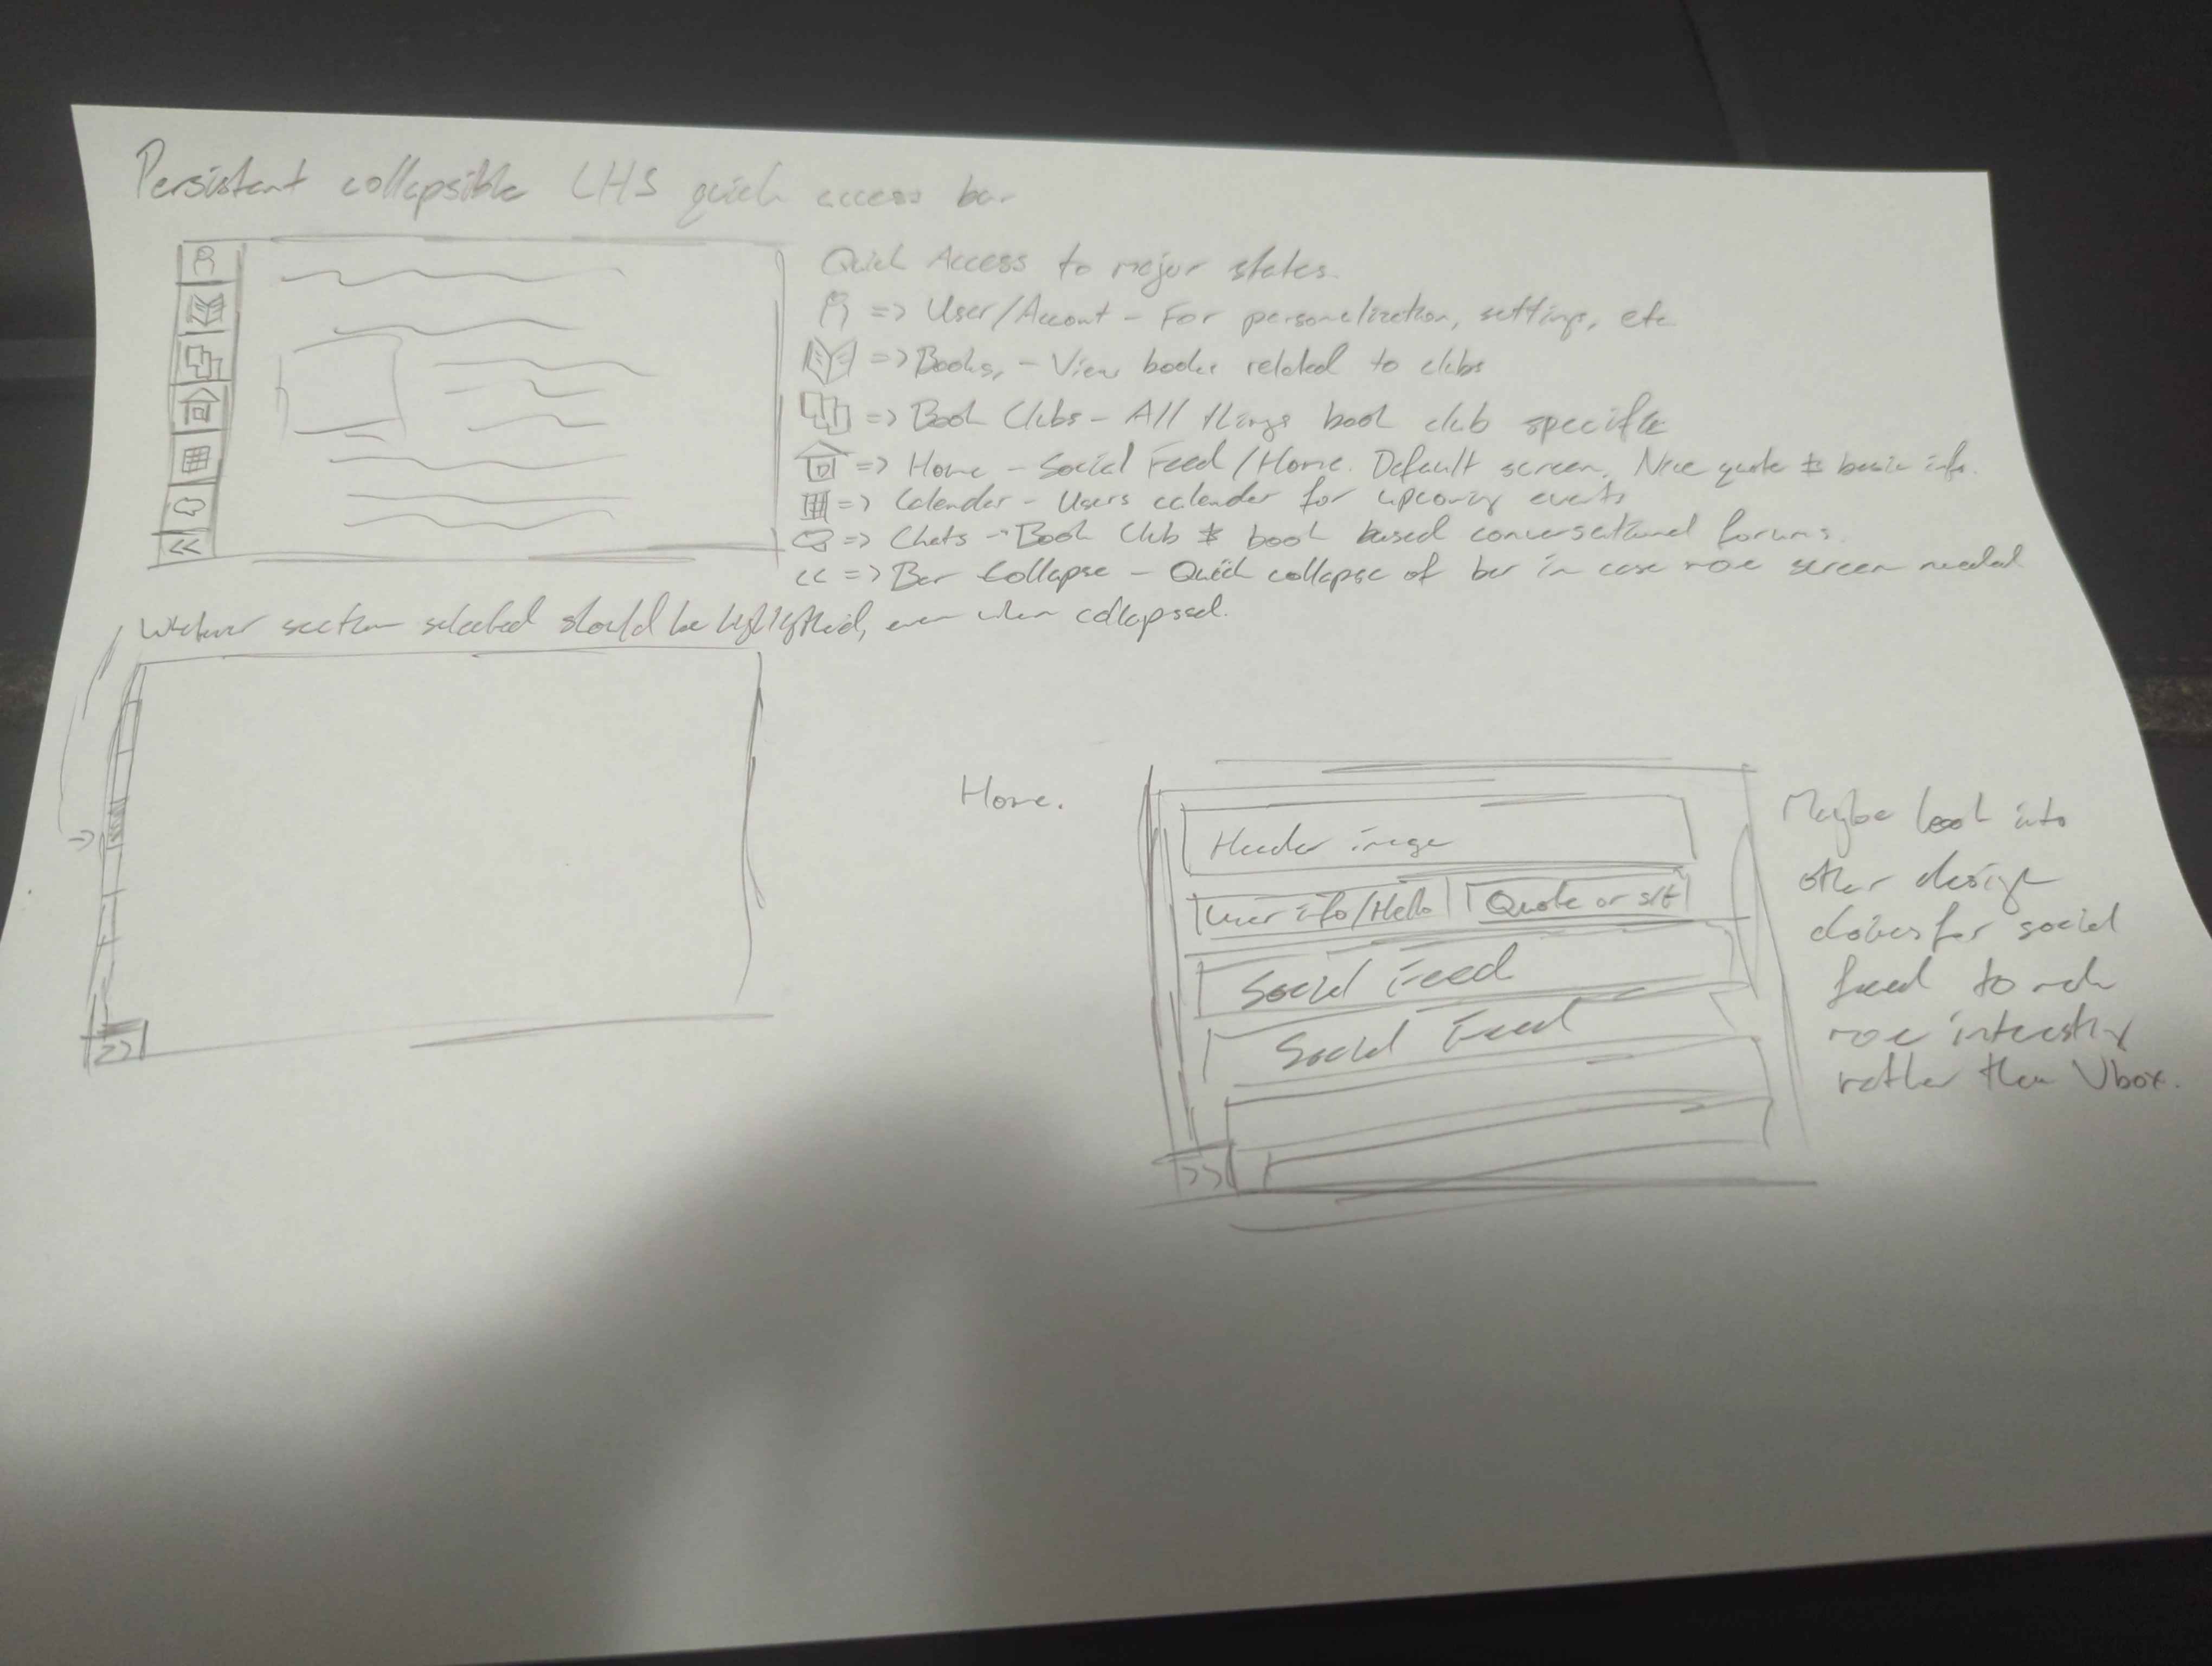 Persistent collapsible LHS quick access bar
Quick Access to major states.
=> User/Account - For personalization, settings, etc
=> Books, - View books related to clubs
=> Book Clubs - All things book club specific
=> Home - Social Feed/Home. Default screen, Nice quote & basic info.
=> Calender - Users calender for upcoming events
=> Chats - Book Club & book based conversational forums.
<< => Bar Collapse - Quick collapse of bar in case more screen needed
<<
section selected should be highlighted, even when collapsed.
>>
Home.
Header image
User info/Hello
Quote or
Social Feed
Social Feed
>>
Maybe look into
other design
for social
feed to
more
rather than Vbox.